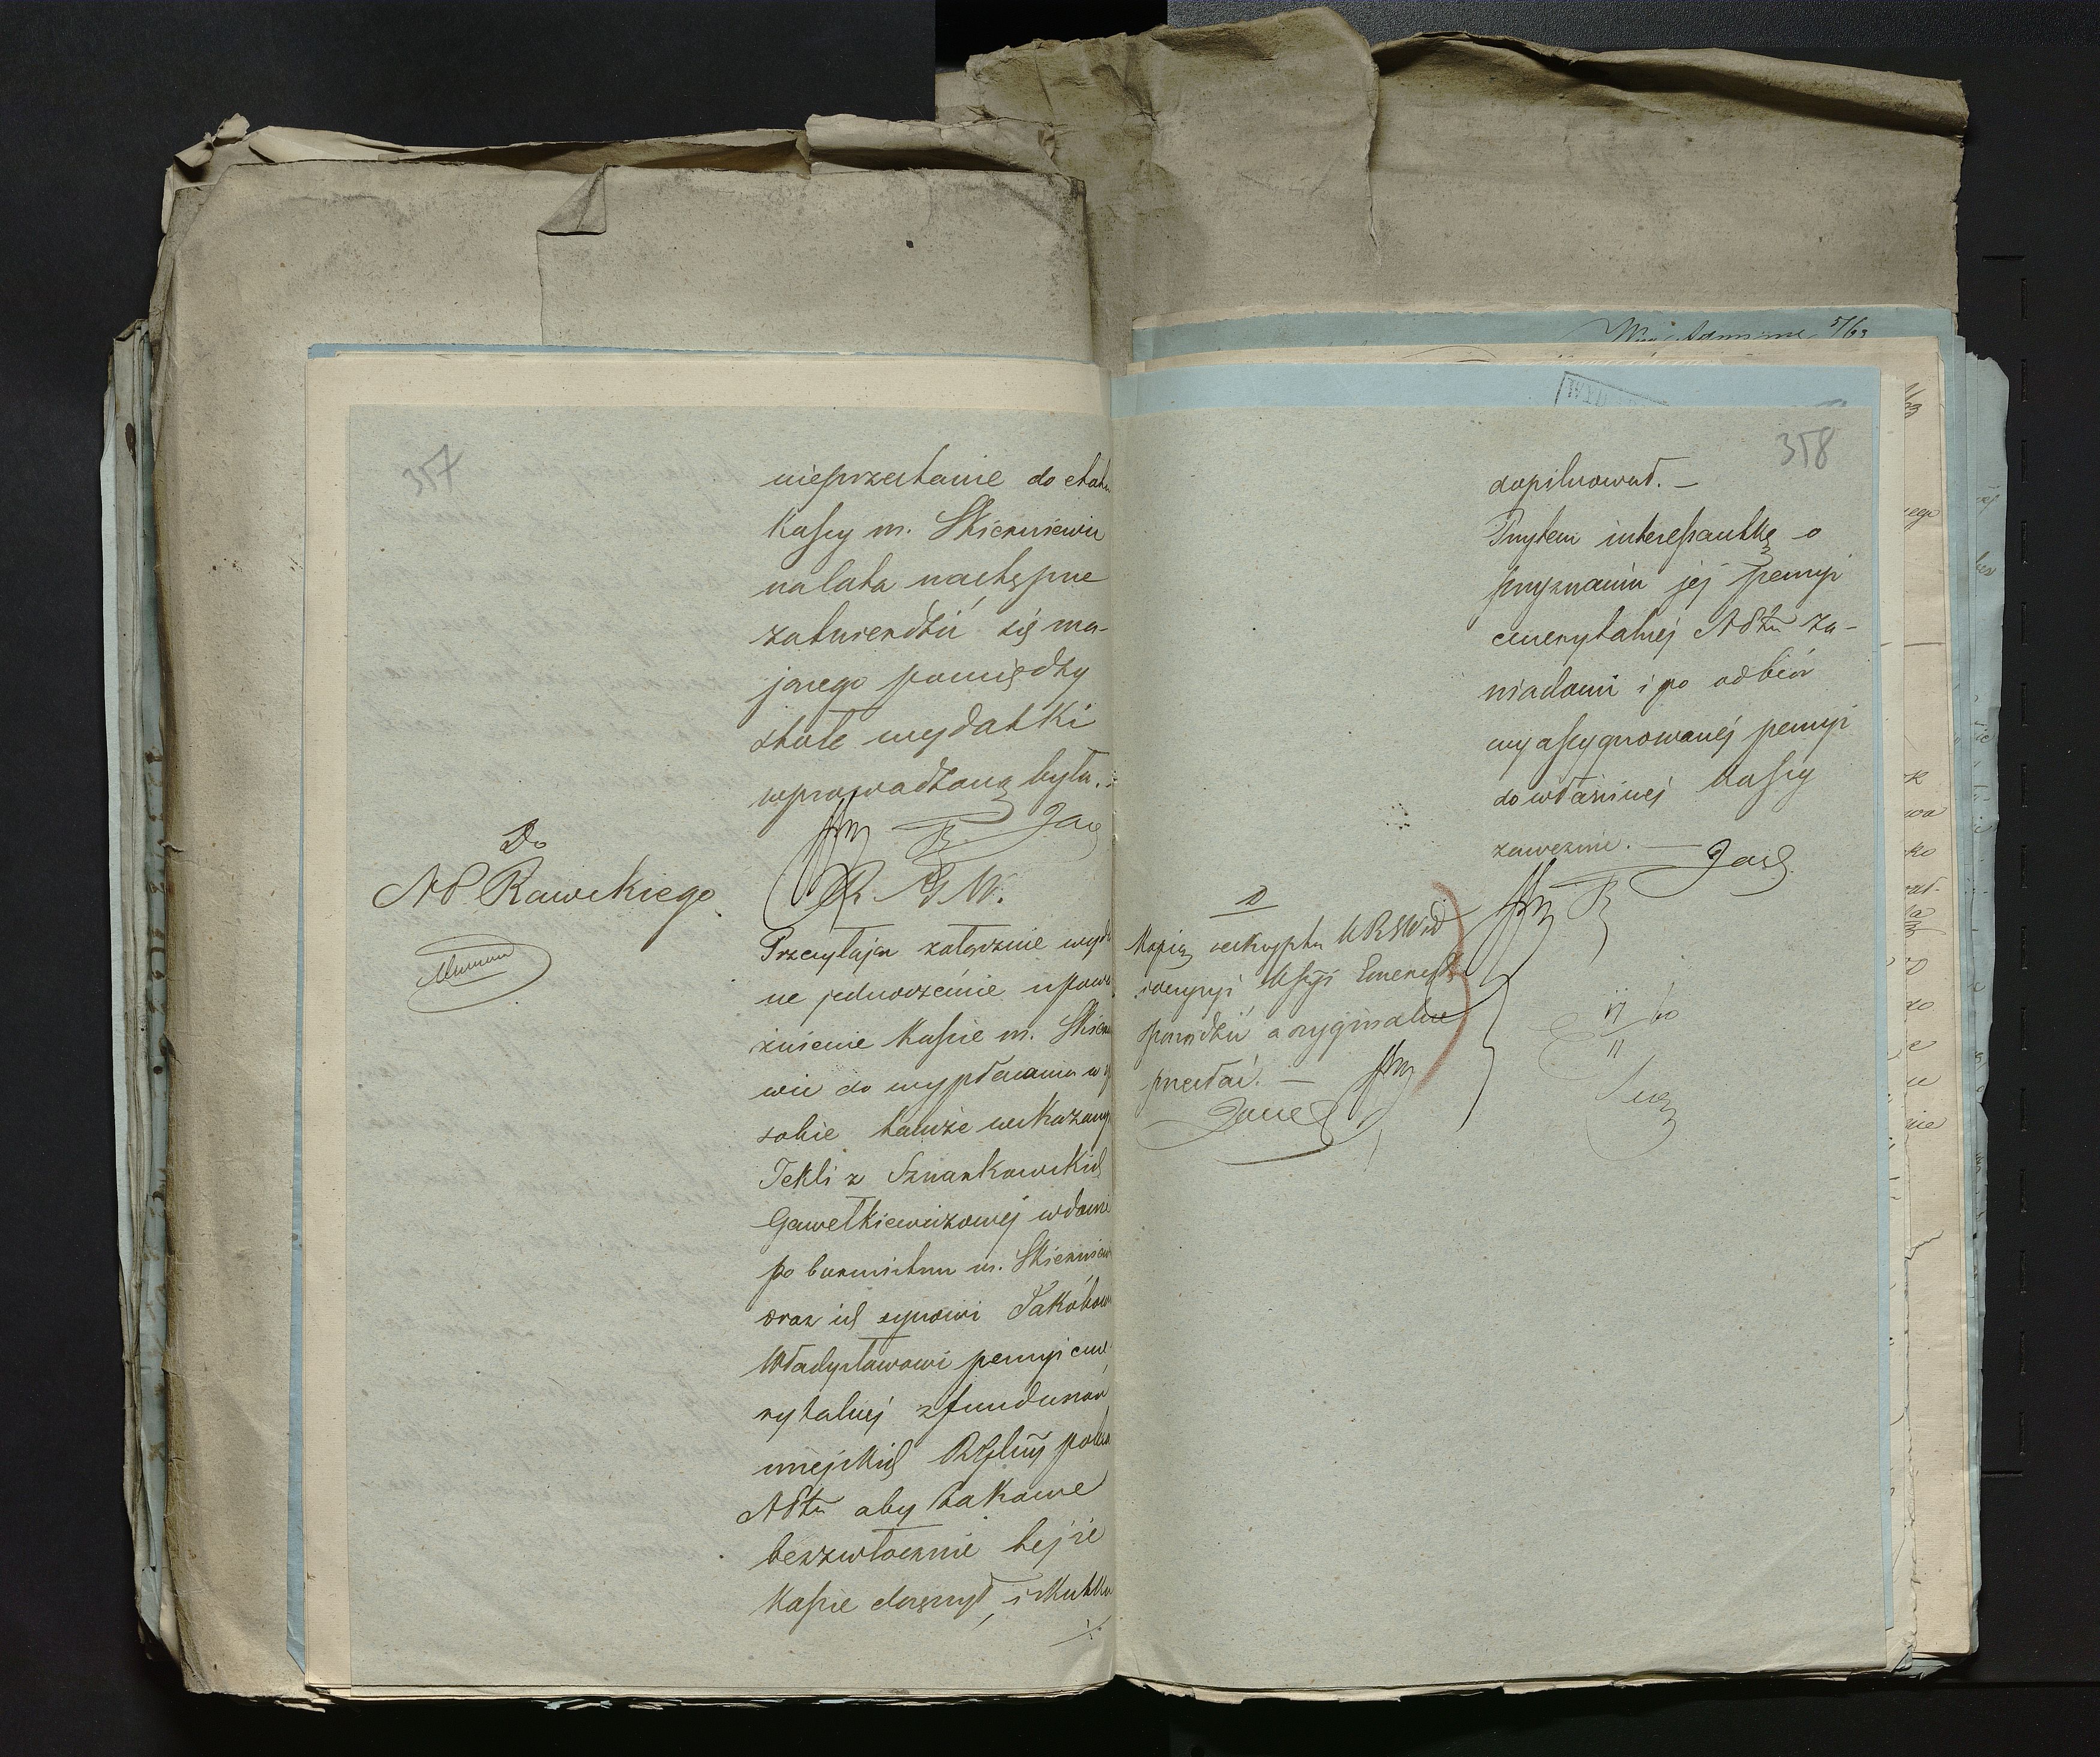 357
nieprzerwanie do etatu
Kassy m. Skierniewic
na lata następne
zatwierdzić się ma-
jącego pomiędzy
stałe wydatki
wprowadzoną była.
Do
NP Rawskiego
R. G W.
Przesyłając załącznie wyda
ne jednocześnie upowa
żnienie Kassie m. Skiernie
wic do wypłacania w
sobie tamże wskazany
Tekli z Sznarkowskich
Gawełkiewiczowej wdowie
po burmistrzu m. Skierniew
oraz ich synowi Jakóbowi
Władysławowi pensyi eme-
rytalnej z funduszów
miejskich poleca
NPtu aby takowe
bezzwłocznie tejże
Kassie doręczył, i skutku
./.
358
dopilnował. –
Przytem interessantkę o
przyznaniu jej pensyi
emerytalnej NPtu za-
wiadomi i po odbiór
wyassygnowanej pensyi
do właściwej Kassy
zawezwie. –
Kopią reskryptu KRSWiD
i decyzyi Kssyi Emeryt
sporządzić a oryginalne
przesłać. –
Wny Admin 5/63